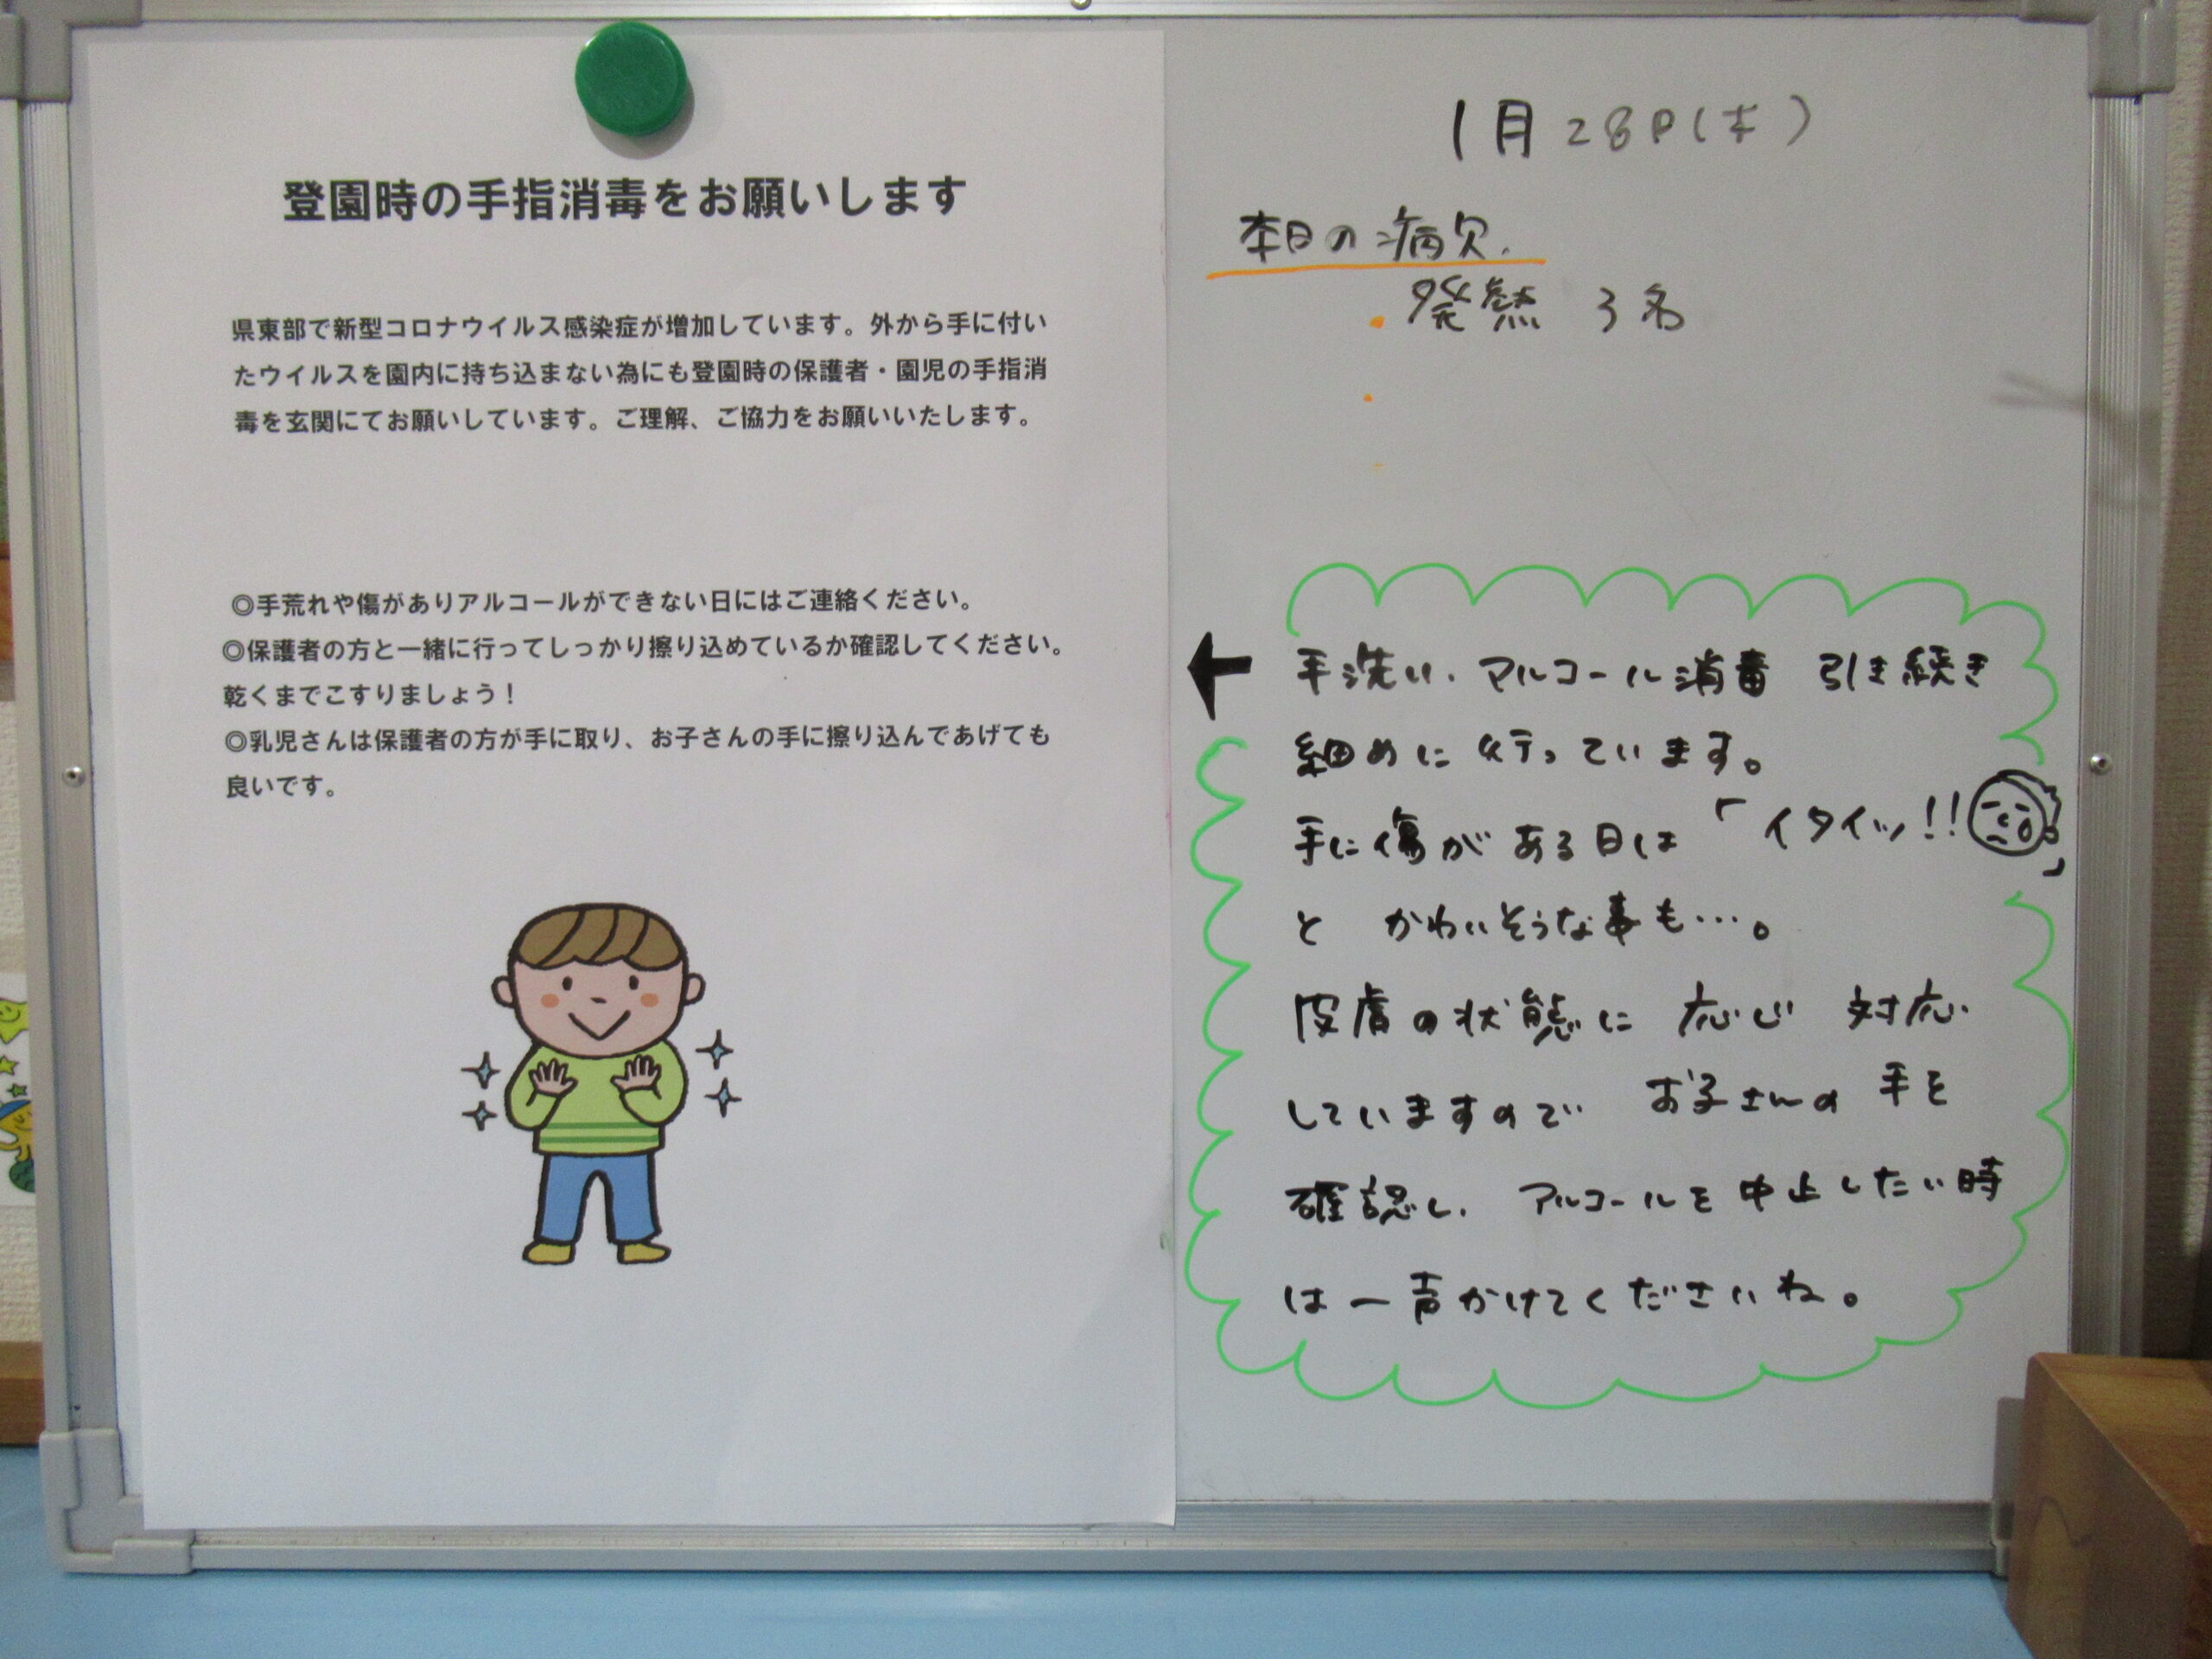 登園時の手指消毒をお願いします
県東部で新型コロナウイルス感染症が増加しています。外から手に付い
たウイルスを園内に持ち込まない為にも登園時の保護者・園児の手指消
毒を玄関にてお願いしています。ご理解、ご協力をお願いいたします。
◎手荒れや傷がありアルコールができない日にはご連絡ください。
◎保護者の方と一緒に行ってしっかり擦り込めているか確認してください。
乾くまでこすりましょう！
◎乳児さんは保護者の方が手に取り、お子さんの手に擦り込んであげても
良いです。
1月28日(木)
本日の病欠.
・発熱 3名
・
・
← 手洗い、アルコール消毒 引き続き
細めに行っています。
手に傷がある日は「イタイッ!!」
と かわいそうな事も…。
皮膚の状態に 応じ 対応
していますので お子さんの 手を
確認し、アルコールを中止したい時
は一声かけてくださいね。